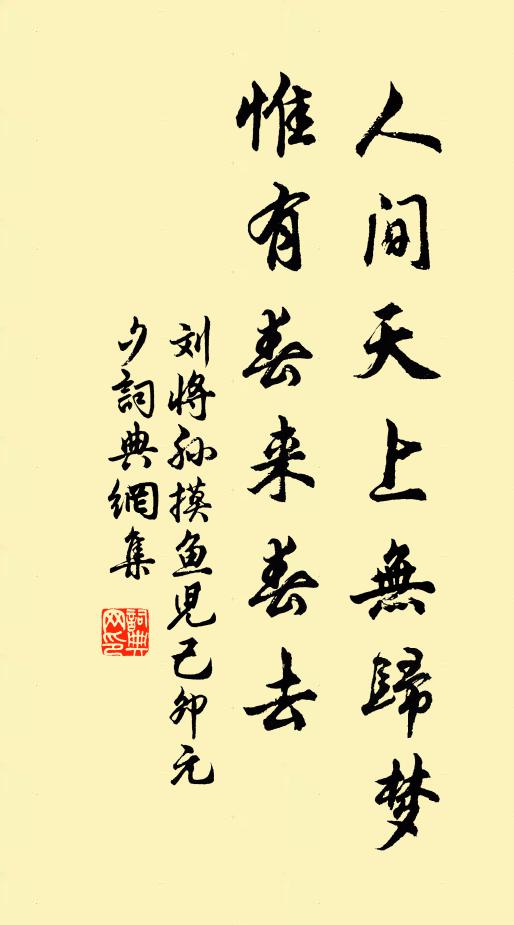 人间天上無歸梦
惟有春来春去
刘将孙摸鱼児己卯元
夕詞典網集
詞典网印